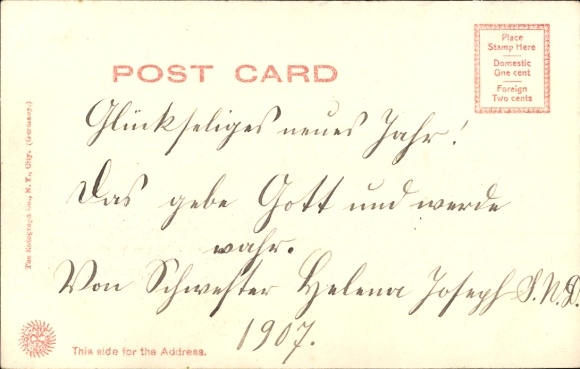 Place
Stamp Here
Domestic
One cent
Foreign
Two cents
POST CARD
Glückseliges neues Jahr!
Das gebe Gott und werde
wahr.
Von Schwester Helena Joseph S.N.D.
1907.
The Rotograph Co., N. Y., City. (Germany.)
This side for the Address.